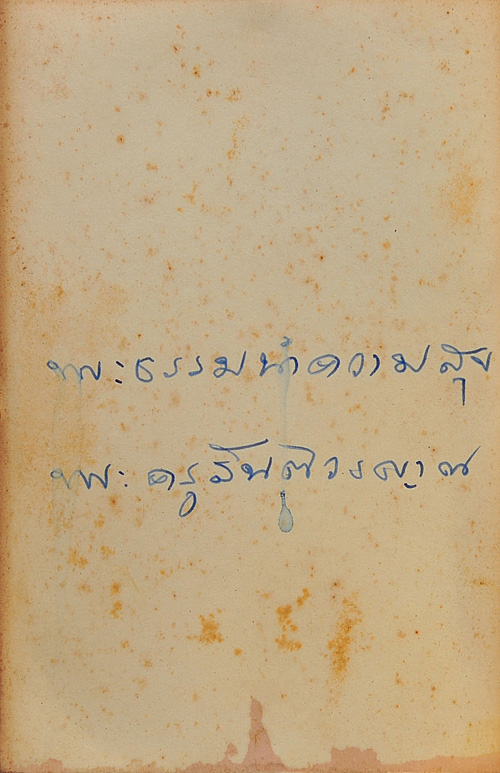 พระธรรมนำความสุข
พระครูสันติวรญาณ